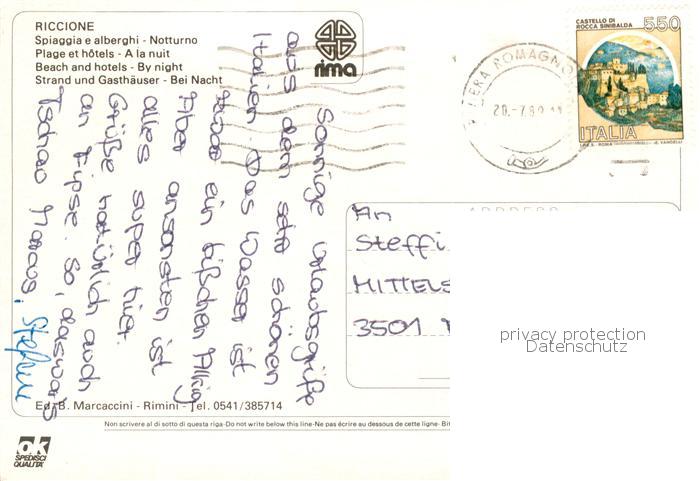 RICCIONE
Spiaggia e alberghi - Notturno
Plage et hôtels - A la nuit
Beach and hotels - By night
Strand und Gasthäuser - Bei Nacht
rima
CASTELLO DI
ROCCA SINIBALDA
550
ITALIA
ERA ROMAGNO
Sonnige Urlaubsgrüße
aus dem sehr schönen
Italien. Das Wasser ist
ein bißchen Algig
Aber ansonsten ist
alles super hier.
Grüße natürlich auch
an Fipse. So, das war's
Tschao Marcus,
Stefan
An
Steffi
MITTELS
3501
privacy protection
Datenschutz
Ed. B. Marcaccini - Rimini - Tel. 0541/385714
Non scrivere al di sotto di questa riga-Do not write below this line-Ne pas écrire au dessous de cette ligne-Bit
ok
SPEDISCI
QUALITA'